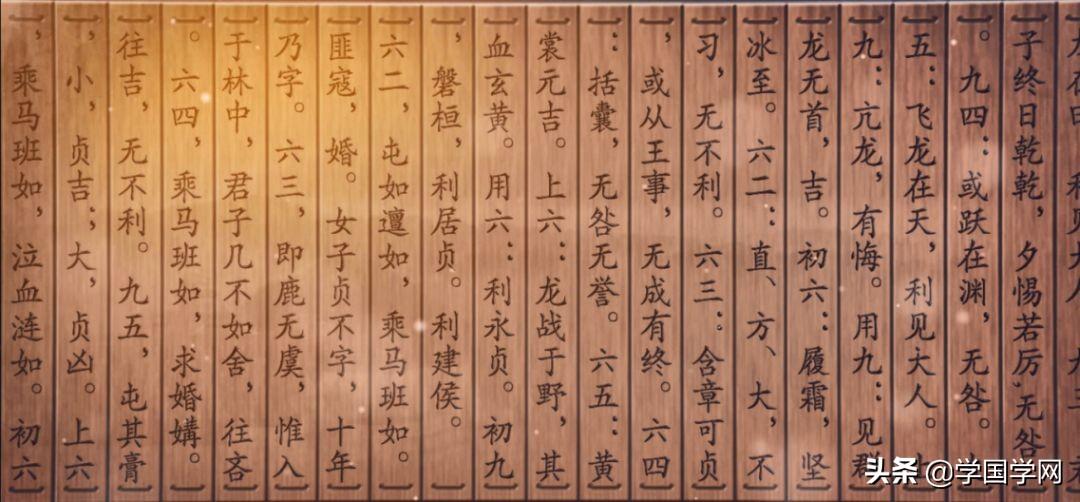 子终日乾乾,夕惕若厉,无咎
。九四:或跃在渊,无咎。
五:飞龙在天,利见大人。
九:亢龙,有悔。用九:见群
龙无首,吉。初六:履霜,坚
冰至。六二:直、方、大,不
习,无不利。六三:含章可贞
,或从王事,无成有终。六四
:括囊,无咎无誉。六五:黄
裳元吉。上六:龙战于野,其
血玄黄。用六:利永贞。初九
,磐桓,利居贞。利建侯。
六二,屯如邅如,乘马班如。
匪寇,婚。女子贞不字,十年
乃字。六三,即鹿无虞,惟入
于林中,君子几不如舍,往吝
。六四,乘马班如,求婚媾。
往吉,无不利。九五,屯其膏
,小,贞吉;大,贞凶。上六
,乘马班如,泣血涟如。初六
头条 @学国学网